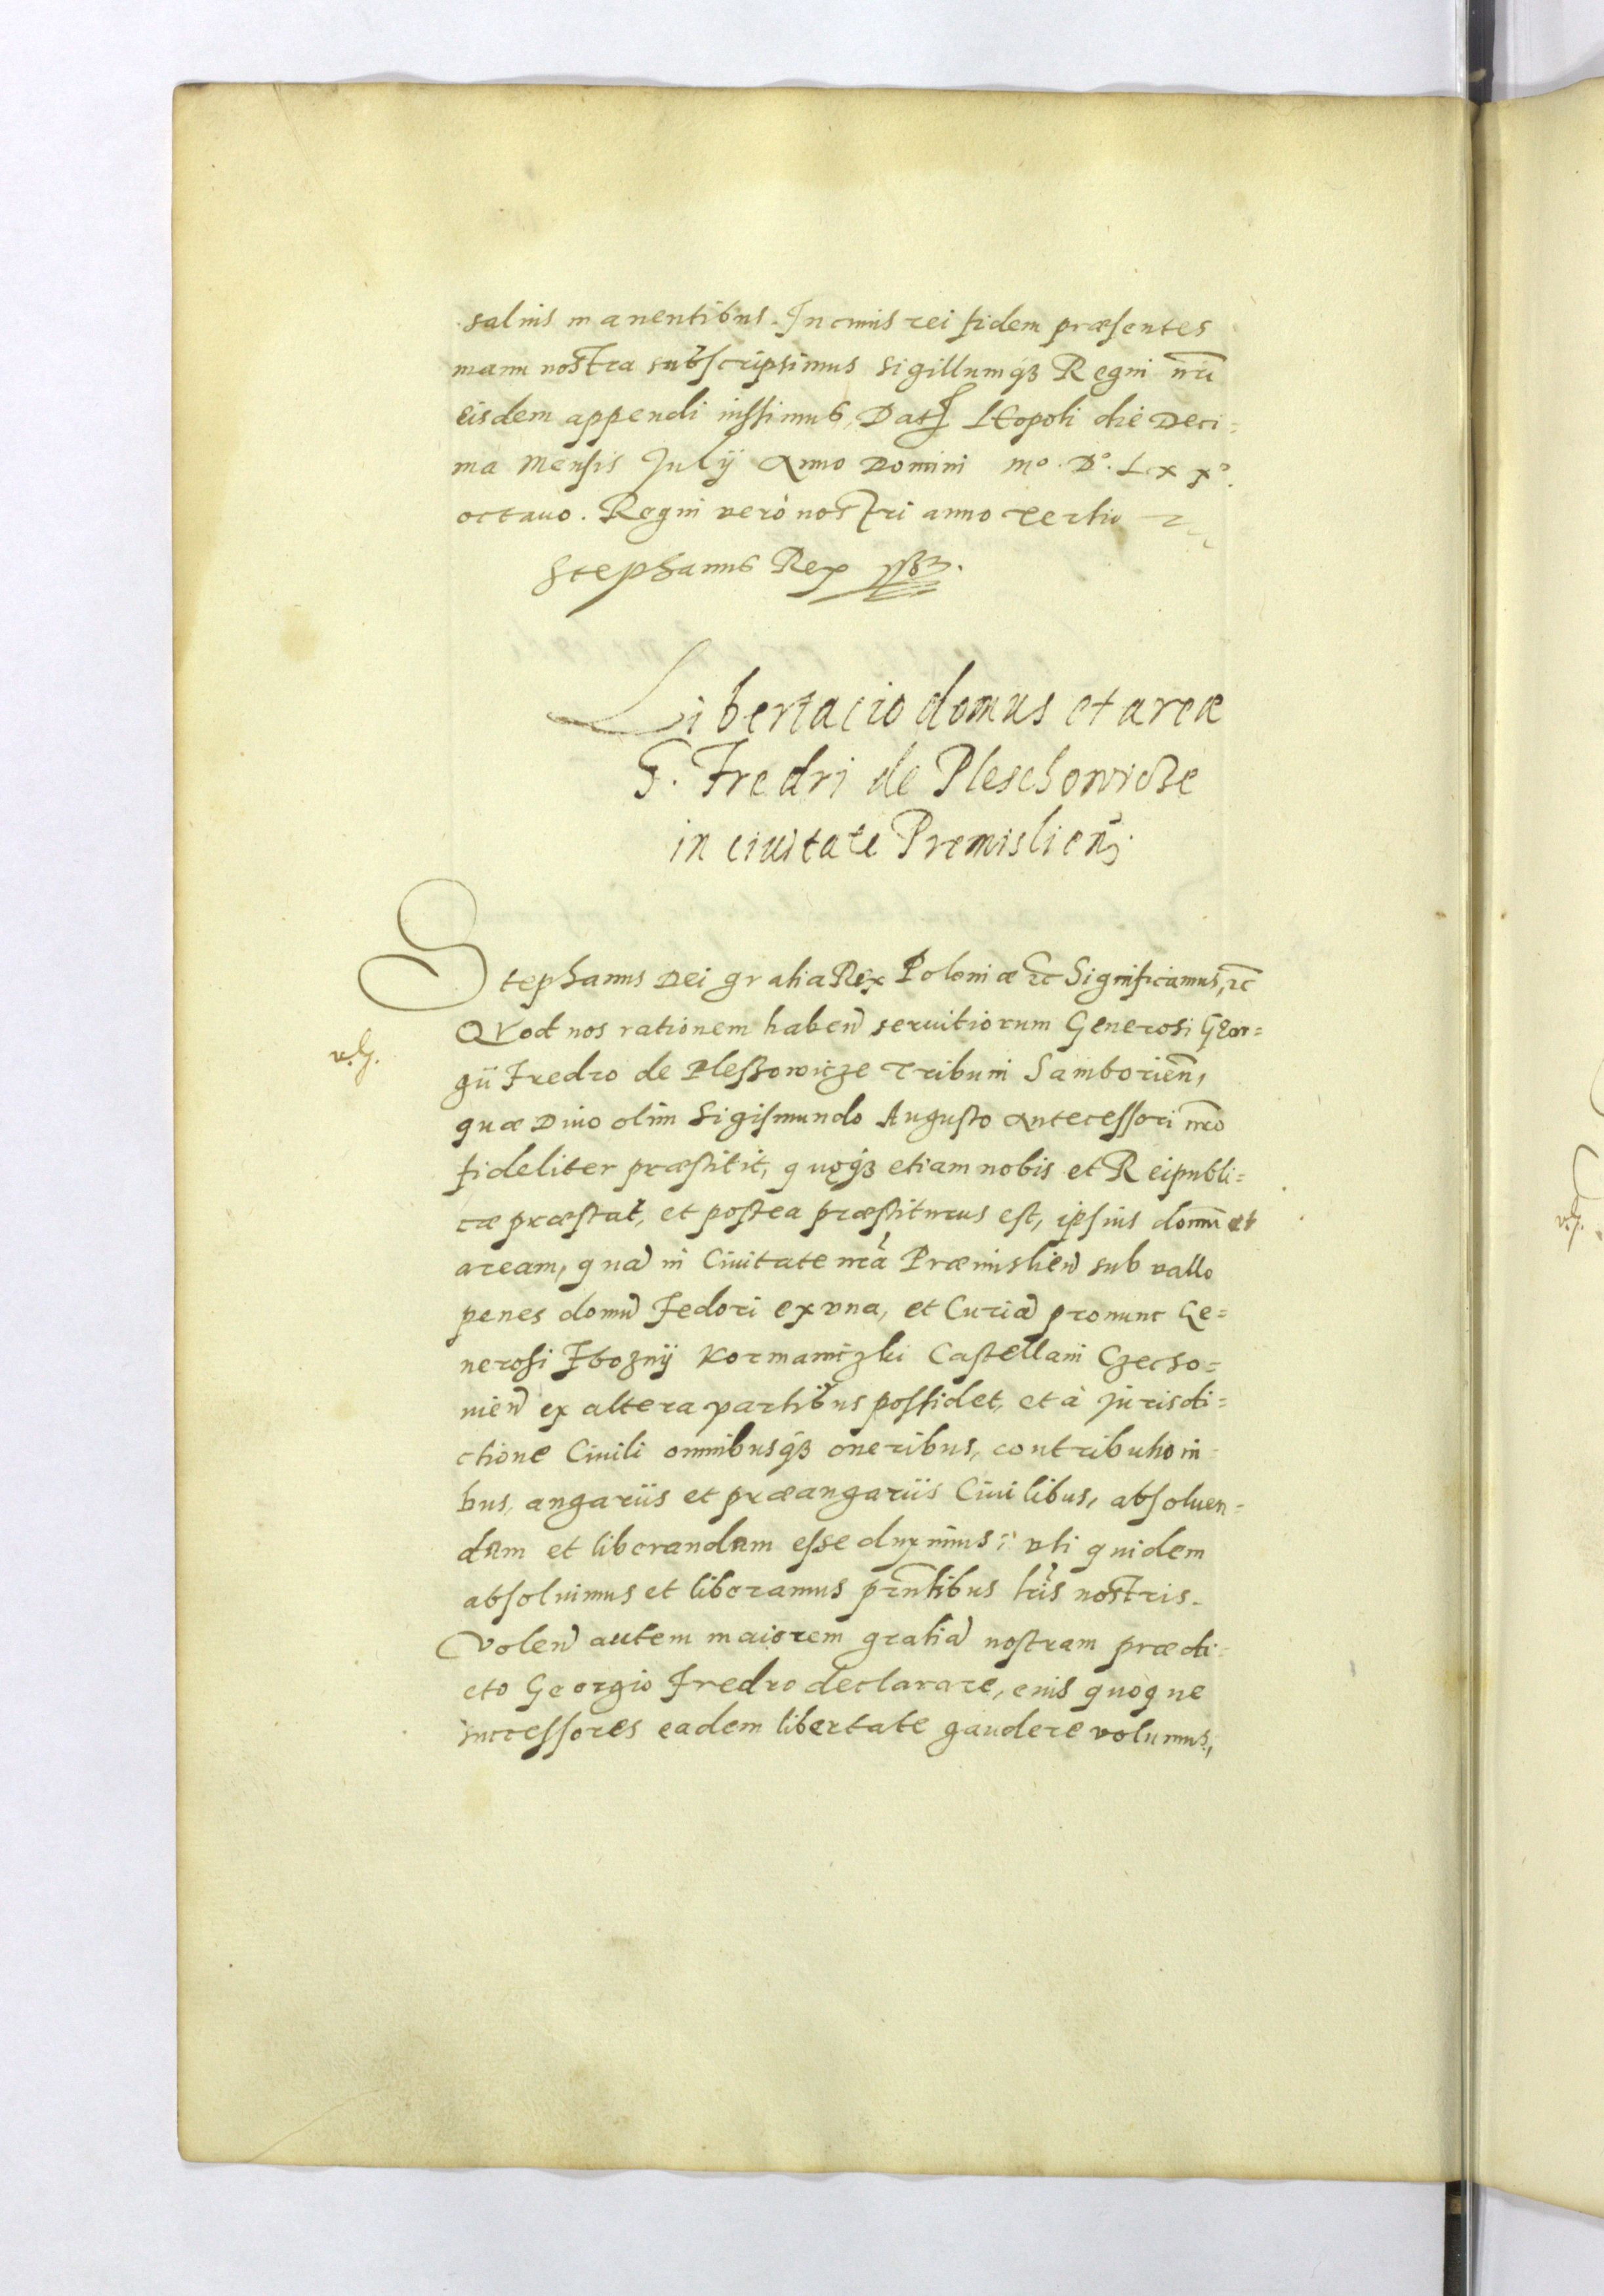 saluis manentibus. In cuius rei fidem præsentes
manu nostra subscripsimus sigillumq3 Regni nr̃i
eisdem appendi iussimus, Dat̃ Leopoli die Deci=
ma Mensis Julij Anno Domini Mº. Dº. Lxxº.
octauo. Regni verò nostri anno tertio
Stephanus Rex sst.
Libertacio domus et areæ
G. Fredri de Pleschowicze
in ciuitate Premislien̄
Stephanus Dei gratia Rex Poloniæ etc Significamus, etc
Quod nos rationem haben̄ seruitiorum Generosi Geor=
v. G.
gii Fredro de Plessowicze Tribuni Samborien̄,
quæ Diuo olim Sigismundo Augusto Antecessori nr̃o
fideliter præstitit, quęq3 etiam nobis et Reipubli=
cæ præstat, et postea præstiturus est, ipsius domū et
aream, quā in Ciuitate nr̃a Præmislien̄ sub vallo
penes domū Fedori ex vna, et Curiā pro nunc Ge=
nerosi Zboznij Kormaniczki Castellani Czecho=
uien̄ ex altera partibus possidet, et à jurisdi=
ctione Ciuili omnibusq3 oneribus, contributioni=
bus, angariis et præangariis Ciuilibus, absoluen=
dam et liberandam esse duximus: vti quidem
absoluimus et liberamus prñtibus lr̃is nostris.
Volen̄ autem maiorem gratiā nostram prædi=
cto Georgio Fredro declarare, eius quoque
successores eadem libertate gaudere volumus,